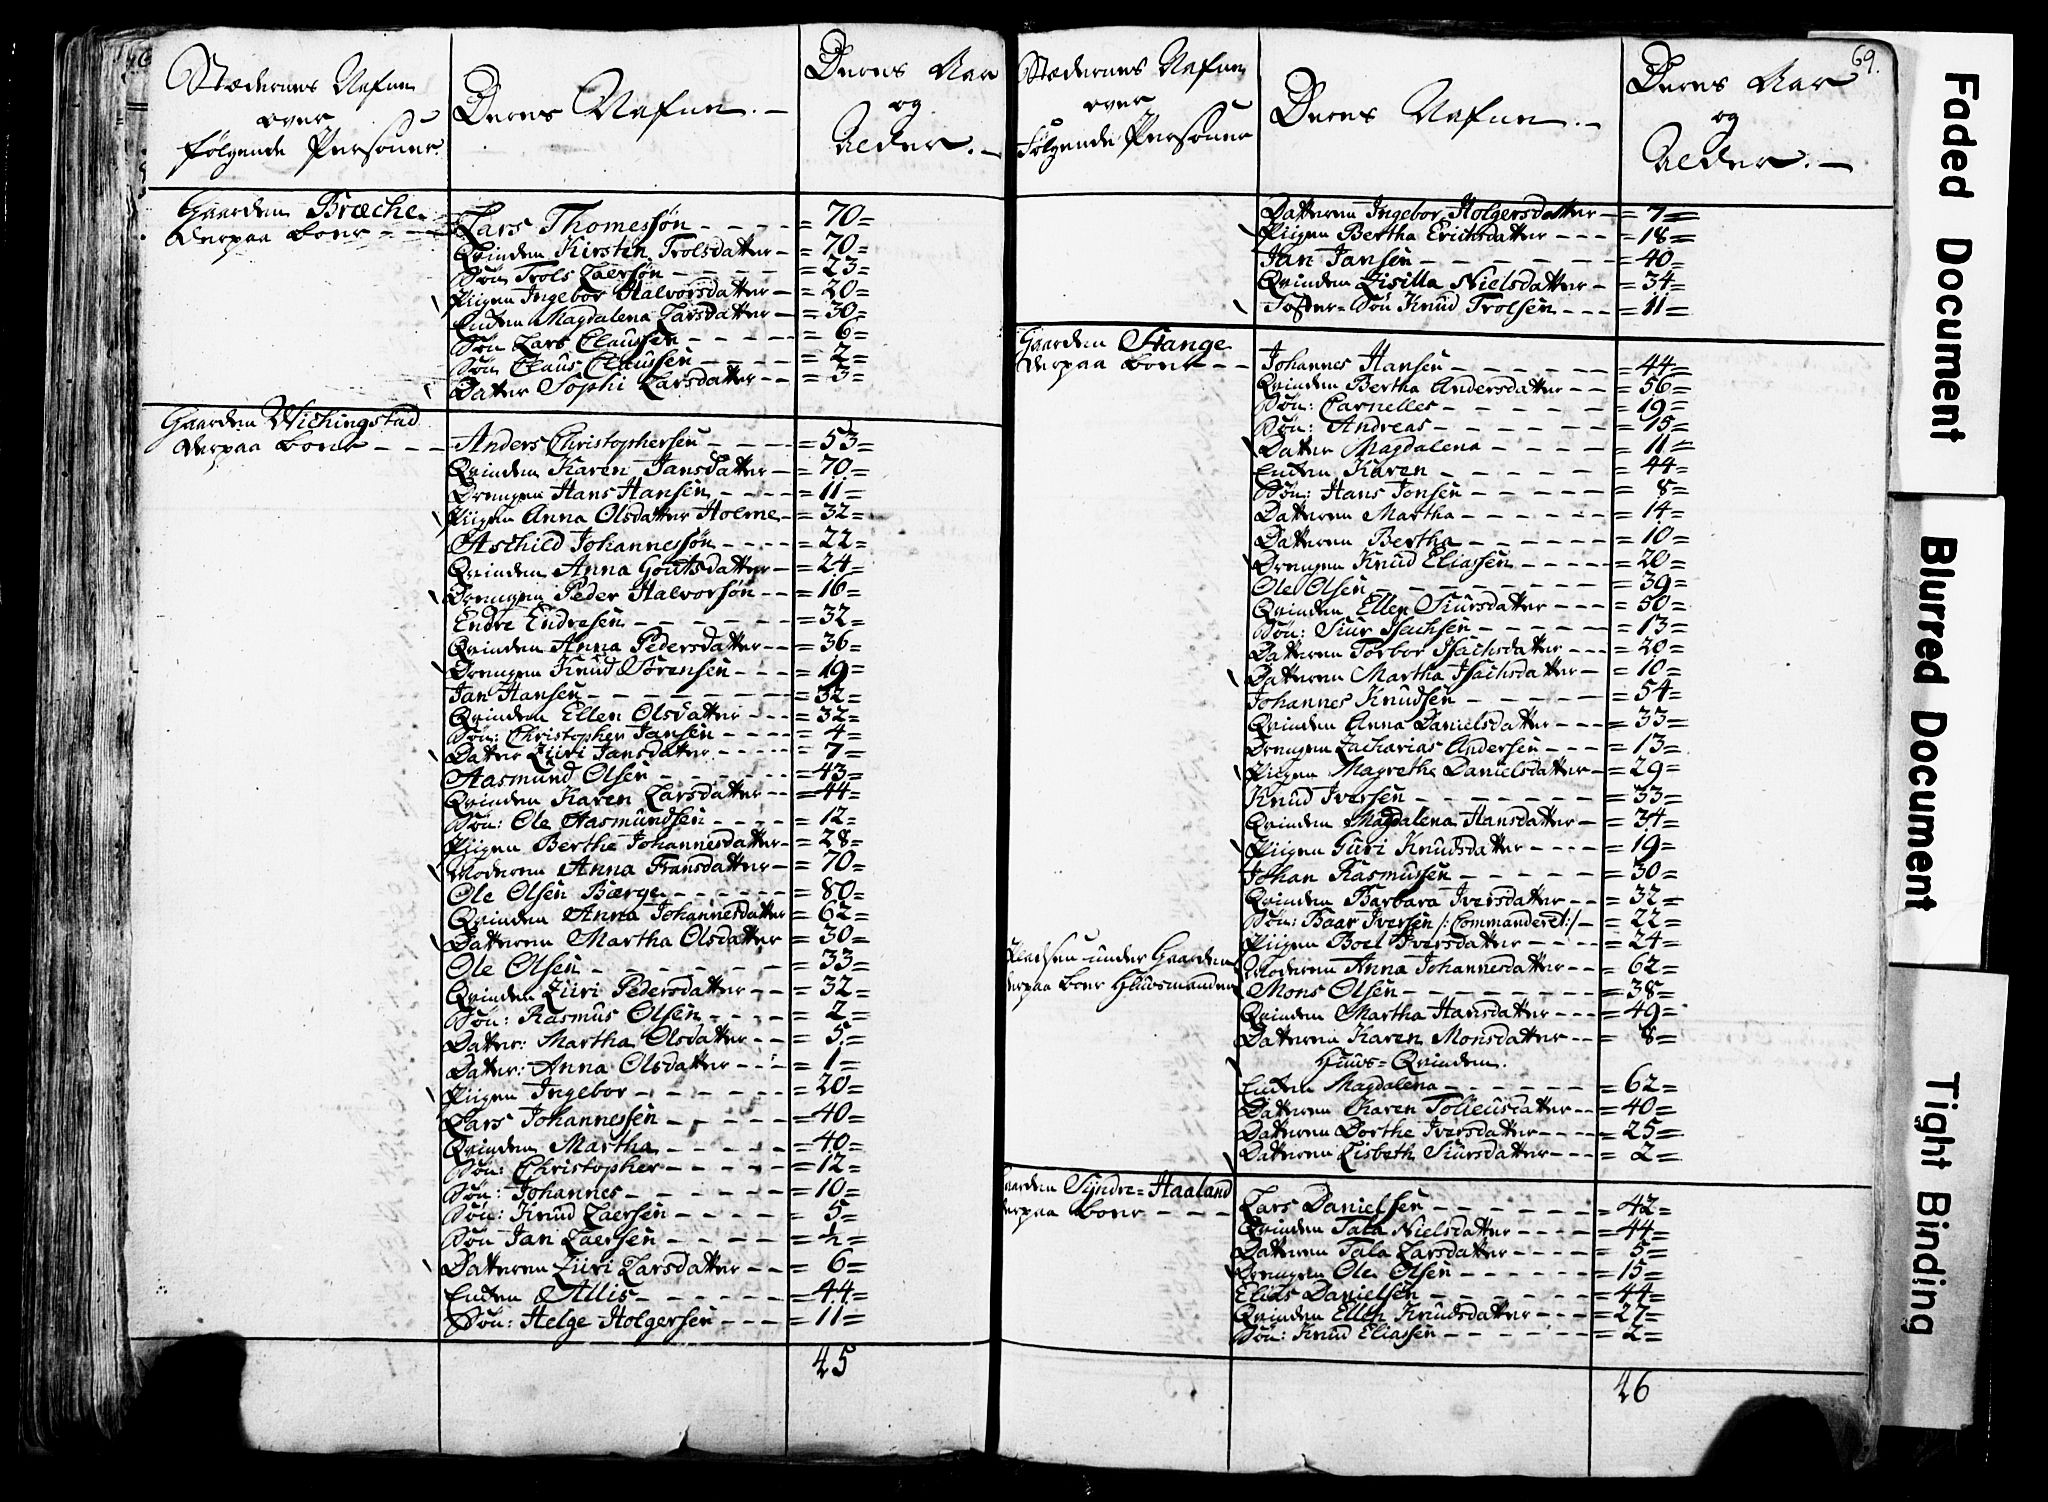 Stædernes Nafne
over
følgende Persouer.
Deres Nafne.
Deres Aar
og
Alder.
Gaarden Bræche
Derpaa boer
Lars Thomessøn = 70 =
Qvinden Kirsten Trolsdatter = 70 =
Søn Trols Laersøn = 23 =
Piigen Ingebor Halvorsdatter = 20 =
Enken Magdalena Larsdatter = 30 =
Søn Lars Claussen = 6 =
Søn Claus Claussen = 2 =
Datter Sophi Larsdatter = 3 =
Gaarden Wichingstad
Derpaa boer
Anders Christophersen = 53 =
Qvinden Karen Jansdatter = 70 =
Drengen Hans Hansen = 11 =
Piigen Anna Olsdatter Holme = 32 =
Aschild Johannessøn = 22 =
Qvinden Anna Goutsdatter = 24 =
Drengen Peder Halvorsøn = 16 =
Endre Endresen = 32 =
Qvinden Anna Pedersdatter = 36 =
Drengen Knud Sørensen = 19 =
Jan Hansen = 32 =
Qvinden Ellen Olsdatter = 32 =
Søn: Christopher Jansen = 4 =
Datter Ziiri Jansdatter = 7 =
Aasmund Olsen = 43 =
Qvinden Karen Larsdatter = 44 =
Søn: Ole Aasmundsen = 12 =
Piigen Berthe Johannesdatter = 28 =
Moderen Anna Fransdatter = 70 =
Ole Olsen Bærge = 80 =
Qvinden Anna Johannesdatter = 62 =
Datteren Martha Olsdatter = 30 =
Ole Olsen = 33 =
Qvinden Ziiri Pedersdatter = 32 =
Søn: Rasmus Olsen = 2 =
Datter: Martha Olsdatter = 5 =
Datter: Anna Olsdatter = 1 =
Piigen Ingebor = 20 =
Lars Johannessen = 40 =
Qvinden Martha = 40 =
Søn: Christopher = 12 =
Søn: Johannes = 10 =
Søn: Knud Laersen = 5 =
Søn Jan Laersen = ½ =
Datteren Ziiri Larsdatter = 6 =
Enken Allis = 44 =
Søn: Helge Holgersen = 11 =
45
69.
Stædernes Nafne
over
Følgende Persouer
Deres Nafne.
Deres Aar
og
Alder.
Datteren Ingebor Holgersdatter = 7 =
Piigen Bertha Erichsdatter = 18 =
Jan Jansen = 40 =
Qvinden Zisilla Nielsdatter = 34 =
Foster-Søn Knud Trolsen = 11 =
Gaarden Stange
Derpaa boer
Johannes Hansen = 44 =
Qvinden Bertha Andersdatter = 56 =
Søn: Carnelles = 19 =
Søn: Andreas = 15 =
Datter Magdalena = 11 =
Enken Karen = 44 =
Søn: Hans Jonsen = 8 =
Datteren Martha = 14 =
Datteren Bertha = 10 =
Drengen Knud Eliassen = 20 =
Ole Olsen = 39 =
Qvinden Ellen Siursdatter = 50 =
Søn: Siur Isachsen = 13 =
Datteren Torbor Isachsdatter = 20 =
Datteren Martha Isachsdatter = 10 =
Johannes Knudsen = 54 =
Qvinden Anna Danielsdatter = 33 =
Drengen Zacharias Andersen = 13 =
Piigen Magrethe Danielsdatter = 29 =
Knud Iversen = 33 =
Qvinden Magdalena Hansdatter = 34 =
Piigen Guri Knudsdatter = 19 =
Johan Rasmussen = 30 =
Qvinden Barbara Iversdatter = 32 =
Søn: Baar Iversen /: Commanderet :/ = 22 =
Piigen Boel Iversdatter = 24 =
Moderen Anna Johannesdatter = 62 =
Pladsen under Gaarden
derpaa boer Huusmanden
Mons Olsen = 38 =
Qvinden Martha Hansdatter = 49 =
Datteren Karen Monsdatter = 8 =
Huus-Qvinden.
Enken Magdalena = 62 =
Datteren Karen Tolleusdatter = 40 =
Datteren Dorthe Iversdatter = 25 =
Datteren Lisbeth Siursdatter = 2 =
Gaarden Syndre-Haaland
Derpaa boer
Lars Danielsen = 42 =
Qvinden Tala Nielsdatter = 44 =
Datteren Tala Larsdatter = 5 =
Drengen Ole Olsen = 15 =
Elias Danielsen = 44 =
Qvinden Ellen Knudsdatter = 27 =
Søn: Knud Eliassen = 2 =
46
Faded Document
Blurred Document
Tight Binding